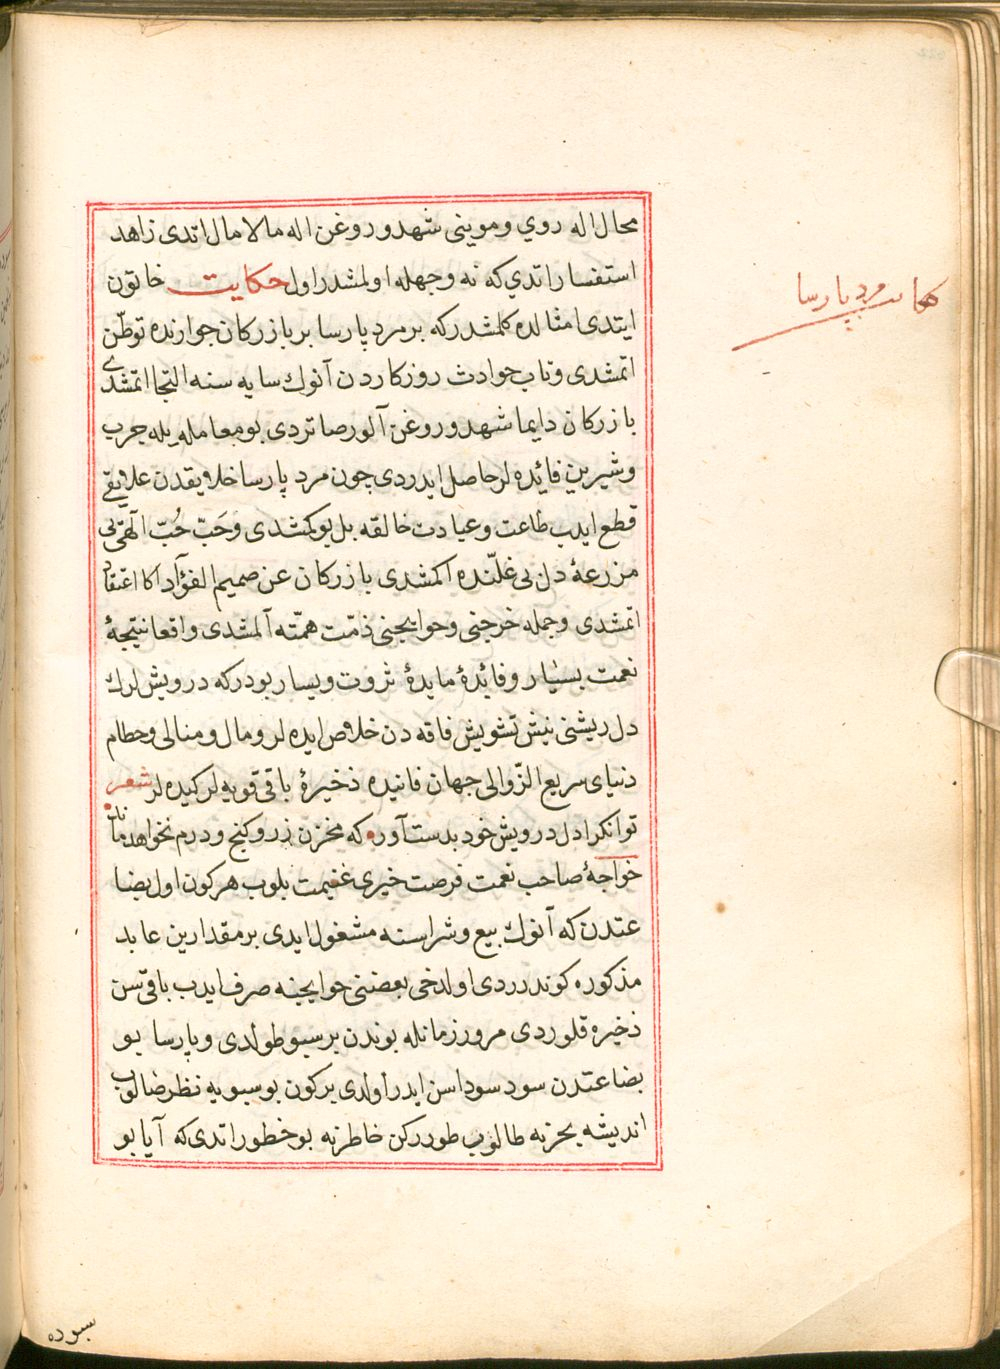 مجال اله روي و مويني شهد و روغن اله مالامال اتدى زاهد
استفسار اتدي كه نه وجهله اولمشدر اول حكايت خاتون
ايتدى امثالده كلمشدر كه بر مرد پارسا بر بازركان جوارنده توطّن
اتمشدى و تاب حوادث روزكاردن آنوك سايه سنه التجا اتمشدى
بازركان دايما شهد و روغن آلور صاتردى بو معامله يله چرب
و شيرين فائده لر حاصل ايدردى چون مرد پارسا خلايقدن علايقى
قطع ايدب طاعت و عبادت خالقه بل بوكمشدى و حَبّ حُبّ الٓهى يى
مزرعهٔ دل بى غلّنده اكمشدى بازركان عن صميم الفؤاد اكا اعتقاد
اتمشدى و جمله خرجنى و حوايجنى ذمّت همّته آلمشدى واقعا نتيجهٔ
نعمت بسيار و فائدهٔ مايدهٔ ثروت و يسار بودر كه درويش لرك
دل ريشنى نيش تشويش فاقه دن خلاص ايده لر و مال و منالى و حطام
دنياى سريع الزّوالى جهان فانيده ذخيرهٔ باقى قويه لر كيده لر شعر
توانكرا دل درويش خود بدست آور كه مخزن زر و كنج و درم نخواهد ماند
خواجهٔ صاحب نعمت فرصت خيرى غنيمت بلوب هر كون اول بضا
عتدن كه آنوك بيع و شراسنه مشغول ايدى بر مقدارين عابد
مذكوره كوندرردى اولدخى بعضنى حوايجنه صرف ايدب باقى سن
ذخيره قلوردى مرور زمانله بوندن بر سبو طولدى و پارسا بو
بضاعتدن سود سوداسن ايدر اولدى بر كون بو سبويه نظر صالوب
انديشه بحرنه طالوب طوررکن خاطرنه بو خطور اتدى كه آيا بو
سبوده
حكايت مرد پارسا